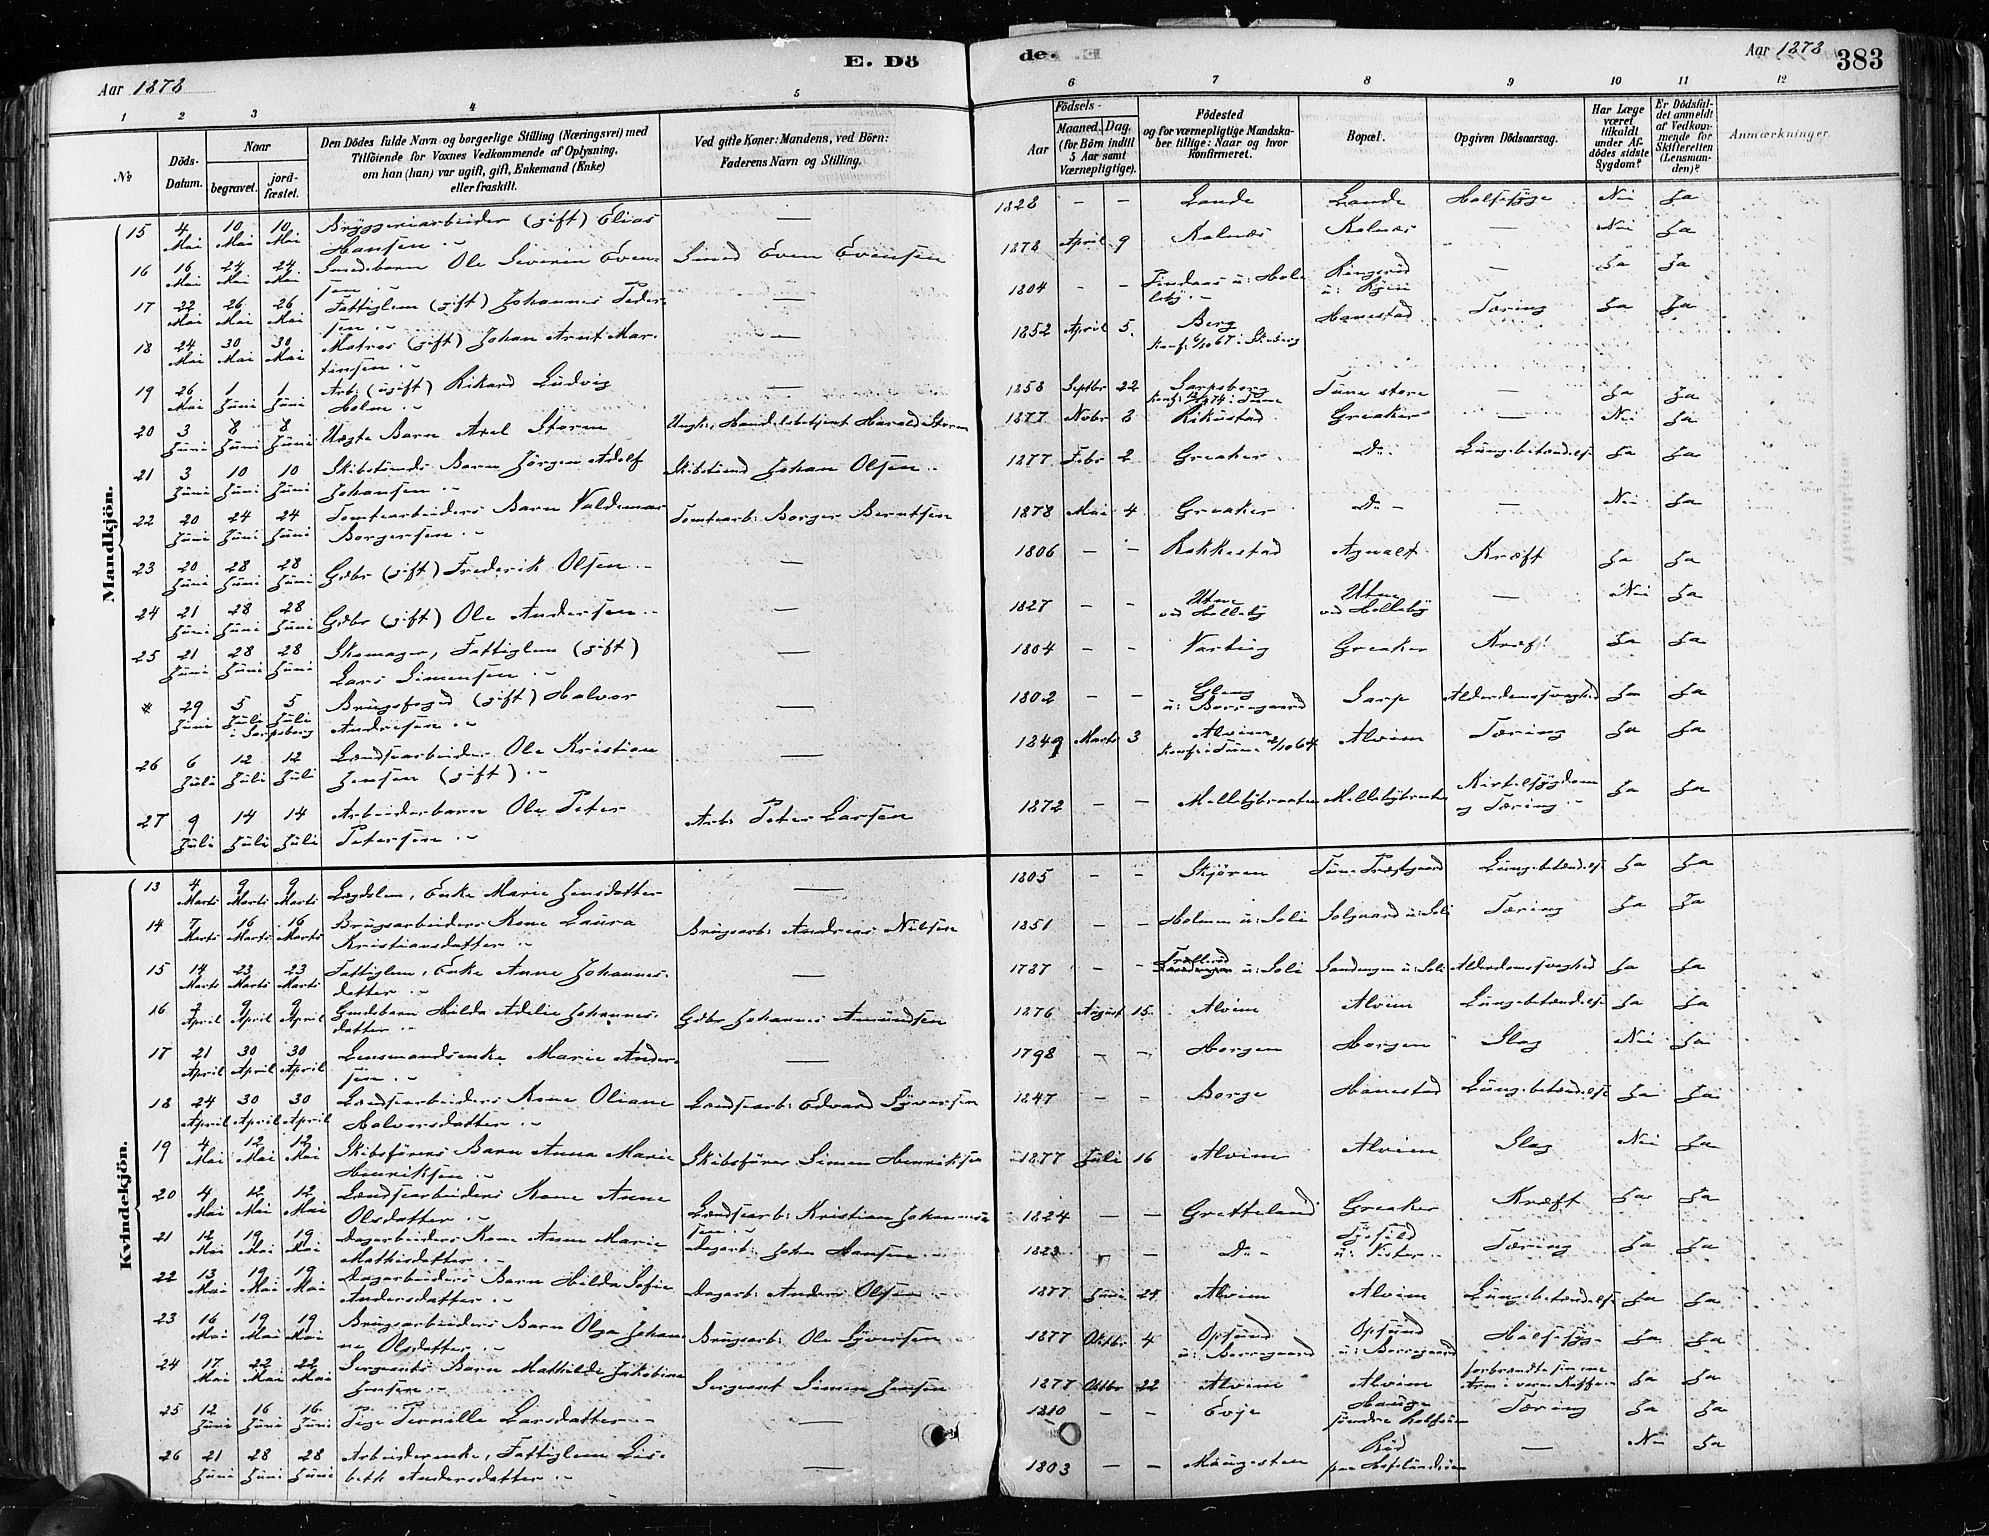 E. Döde.
Aar 1878
Aar 1878
383
1 2 3 4 5 6 7 8 9 10 11 12
№
Döds-Datum.
Naar
begravet.
jordfæstet.
Den Dödes fulde Navn og borgerlige Stilling (Næringsvei) med
Tilföiende for Voxnes Vedkommende af Oplysning,
om han (hun) var ugift, gift, Enkemand (Enke)
eller fraskilt.
Ved gifte Koner: Mandens, ved Börn:
Faderens Navn og Stilling.
Födsels-
Aar
Maaned. Dag.
(for Börn indtil
5 Aar samt
Værnepligtige).
Födested
og for værnepligtige Mandska-
ber tillige: Naar og hvor
konfirmeret.
Bopæl.
Opgiven Dödsaarsag.
Har Læge
været
tilkaldt
under Af-
dödes sidste
Sygdom?
Er Dödsfal-
det anmeldt
af Vedkom-
mende for
Skifteretten
(Lensman-
den)?
Anmærkninger.
Mandkjön.
15 4 Mai 10 Mai 10 Mai Bryggeriarbeider (gift) Elias Hansen — 1828 - - Lande Lande Halssyge Nei Ja
16 16 Mai 24 Mai 24 Mai Smedebarn Ole Severin Evensen Smed Even Evensen 1878 April 9 Kalnæs Kalnæs — Nei Ja
17 22 Mai 26 Mai 26 Mai Fattiglem (gift) Johannes Pedersen — 1804 - - — Ja Ja
18 24 Mai 30 Mai 30 Mai Matros (gift) Johan Arnt Martinsen — 1852 April 5 Berg Konf: 67 i Skeberg Hanestad Tæring Ja Ja
19 26 Mai 1 Juni 1 Juni Arb: (ugift) Rikard Ludvig Holm — 1858 Septbr 22 Sarpsborg 74 i Tune Tune store — Ja Ja
20 3 Juni 8 Juni 8 Juni Uægte Barn Axel Storm Ungk: Handelsbetjent Harald Storm 1877 Novbr 8 Rikustad Greaker — Nei Ja
21 3 Juni 10 Juni 10 Juni Skibstömds Barn Jörgen Adolf Johansen Skibstömd Johan Olsen 1877 Febr 2 Greaker Do Lungebetændelse Ja Ja
22 20 Juni 24 Juni 24 Juni Tomtearbeiders Barn Valdemar Borgersen Tomtearb: Borger Berntsen 1878 Mai 4 Greaker Do — Nei Ja
23 20 Juni 28 Juni 28 Juni Gdbr (gift) Frederik Olsen — 1806 - - Rakkestad Agnalt Kræft Ja Ja
24 21 Juni 28 Juni 28 Juni Gdbr (gift) Ole Andersen — 1827 - - Utne ved Holleby Utne ved Holleby — Nei Ja
25 21 Juni 28 Juni 28 Juni Skomager, Fattiglem (gift) Lars Simensen — 1804 - - Varteig Greaker Kræft Ja Ja
* 29 Juni 5 Juli 5 Juli i Sarpsborg Brugsfoged (gift) Halvor Andresen — 1802 - - Gleng u: Borregaard Sarp Alderdomssvaghed Ja Ja
26 6 Juli 12 Juli 12 Juli Landsearbeider Ole Kristian Jensen (gift) — 1849 Marts 3 Alvim Konf: i Tune 2/10 64 Alvim Tæring Ja Ja
27 9 Juli 14 Juli 14 Juli Arbeiderbarn Ole Peter Petersen Arb: Peter Larsen 1872 - - Mellebybraaten Mellebybraaten Kirtelsygdom og Tæring Ja Ja
Kvindekjön.
13 4 Marts 9 Marts 9 Marts Lægdslem, Enke Marie Jensdatter — 1805 - - Skjören Tune Præstgaard Lungebetændelse Ja Ja
14 7 Marts 16 Marts 16 Marts Brugsarbeiders Kone Laura Kristiansdatter Brugsarb: Andreas Nilsen 1851 - - Holmen u: Soli Solgaard u: Soli Tæring Ja Ja
15 14 Marts 23 Marts 23 Marts Fattiglem, Enke Anne Johannesdatter — 1787 - - u: Soli Sandengen u: Soli Alderdomssvaghed Ja Ja
16 2 April 9 April 9 April Gaardbarn Hilda Adelie Johannesdatter Gdbr Johannes Amundsen 1876 August 15 Alvim Alvim Lungebetændelse Ja Ja
17 21 April 30 April 30 April Lensmandsenke Marie Andersen — 1798 - - Horgen Horgen Slag Nei Ja
18 24 April 30 April 30 April Landsearbeiders Kone Oliane Halvorsdatter Landsearb: Edvard Syversen 1847 - - Borge Hanestad Lungebetændelse Ja Ja
19 4 Mai 12 Mai 12 Mai Skibsförers Barn Anna Marie Henriksen Skibsförer Simen Henriksen 1877 Juli 16 Alvim Alvim Slag Nei Ja
20 4 Mai 12 Mai 12 Mai Landsearbeiders Kone Anne Olsdatter Landsearb: Kristian Johannesen 1824 - - Gretteland Greaker Kræft Ja Ja
21 12 Mai 19 Mai 19 Mai Dagarbeiders Kone Anne Marie Mathisdatter Dagarb: John Hansen 1823 - - Do Tæring Ja Ja
22 13 Mai 19 Mai 19 Mai Dagarbeiders Barn Hilda Sofie Andersdatter Dagarb: Anders Olsen 1877 Juni 25 Alvim Alvim Lungebetændelse Ja Ja
23 16 Mai 19 Mai 19 Mai Brugsarbeiders Barn Olga Johanne Olsdatter Brugsarb: Ole Syversen 1877 Oktbr 4 Opsund u: Borregaard Opsund u: Borregaard Halssyge Ja Ja
24 17 Mai 22 Mai 22 Mai Sergeants Barn Mathilde Jakobine Jensen Sergeant Simen Jensen 1877 Oktbr 22 Alvim Alvim forbrændte sin ene Arm i varm Kaffe Ja Ja
25 12 Juni 16 Juni 16 Juni Pige Pernille Larsdatter — 1810 - - Evje Hauge söndre Tæring Ja Ja
26 21 Juni 28 Juni 28 Juni Arbeiderenke, Fattiglem Lisbeth Andersdatter — 1803 - - Haugesten Röd paa Hafslundsöen — Nei Ja